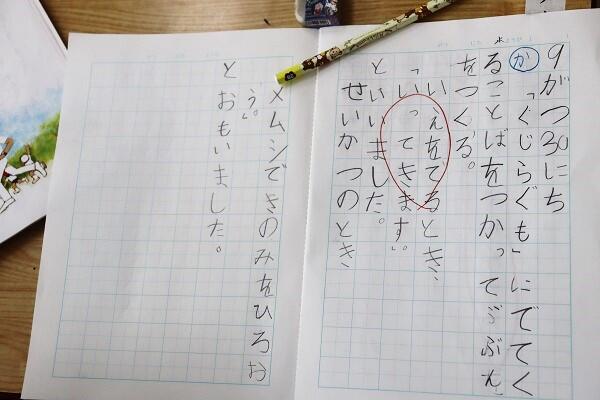 水
9がつ30にち
か「くじらぐも」にでてく
ることばをつかって、ぶん
をつくる。
いえをでるとき、
「いってきます。」
といいました。
せいかつのとき、
メムシできのみをひろお
う。」
とおもいました。